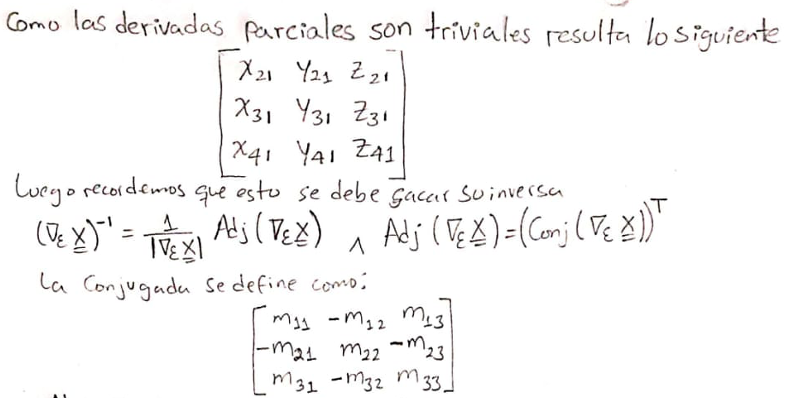 Como las derivadas parciales son triviales resulta lo siguiente
[X21 Y21 Z21
X31 Y31 Z31
X41 Y41 Z41]
Luego recordemos que esto se debe sacar su inversa
(∇ε X)^-1 = 1/|∇ε X| Adj (∇ε X) ∧ Adj (∇ε X) = (Conj (∇ε X))^T
La Conjugada se define como:
[m11 -m12 m13
-m21 m22 -m23
m31 -m32 m33]